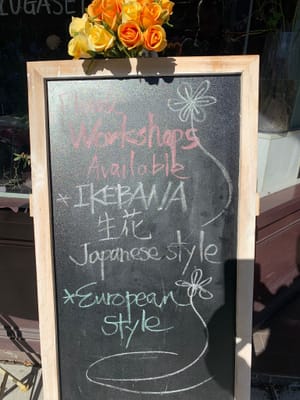 Workshops
Available
* IKEBANA
生花
Japanese style
* European
style